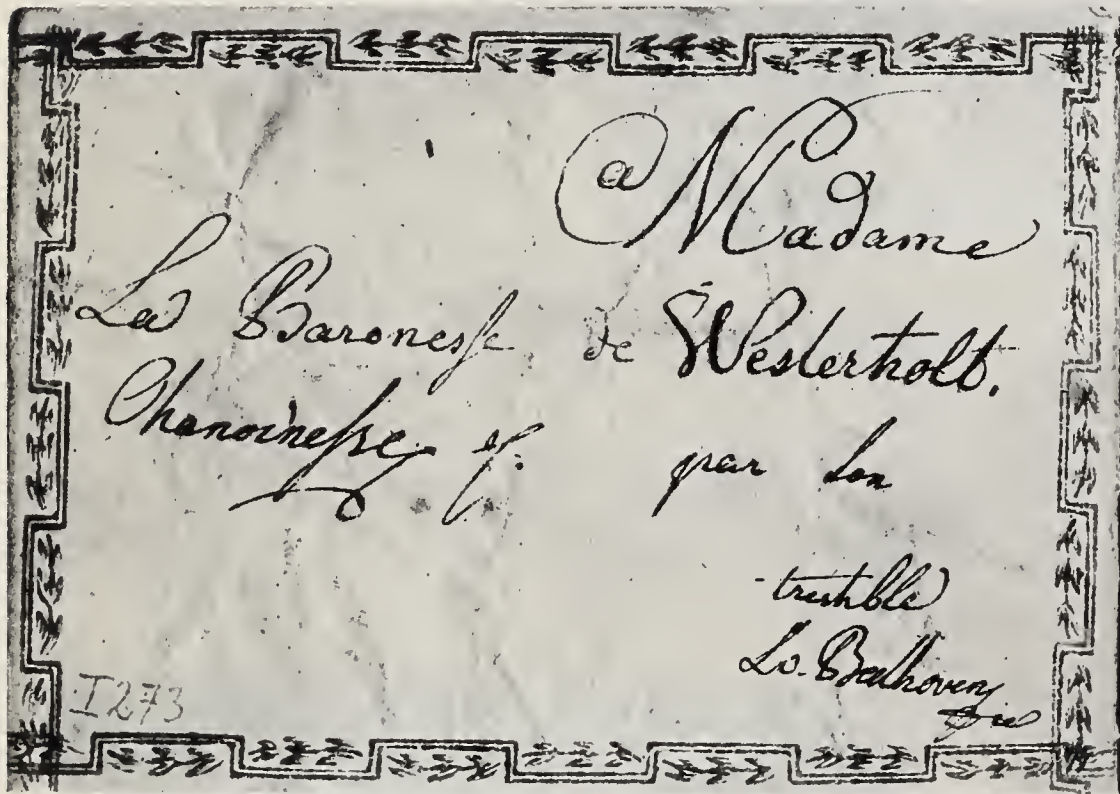 a Madame
La Baronesse de Westerholt.
Chanoinesse par son
Lv. Beethoven
I 273